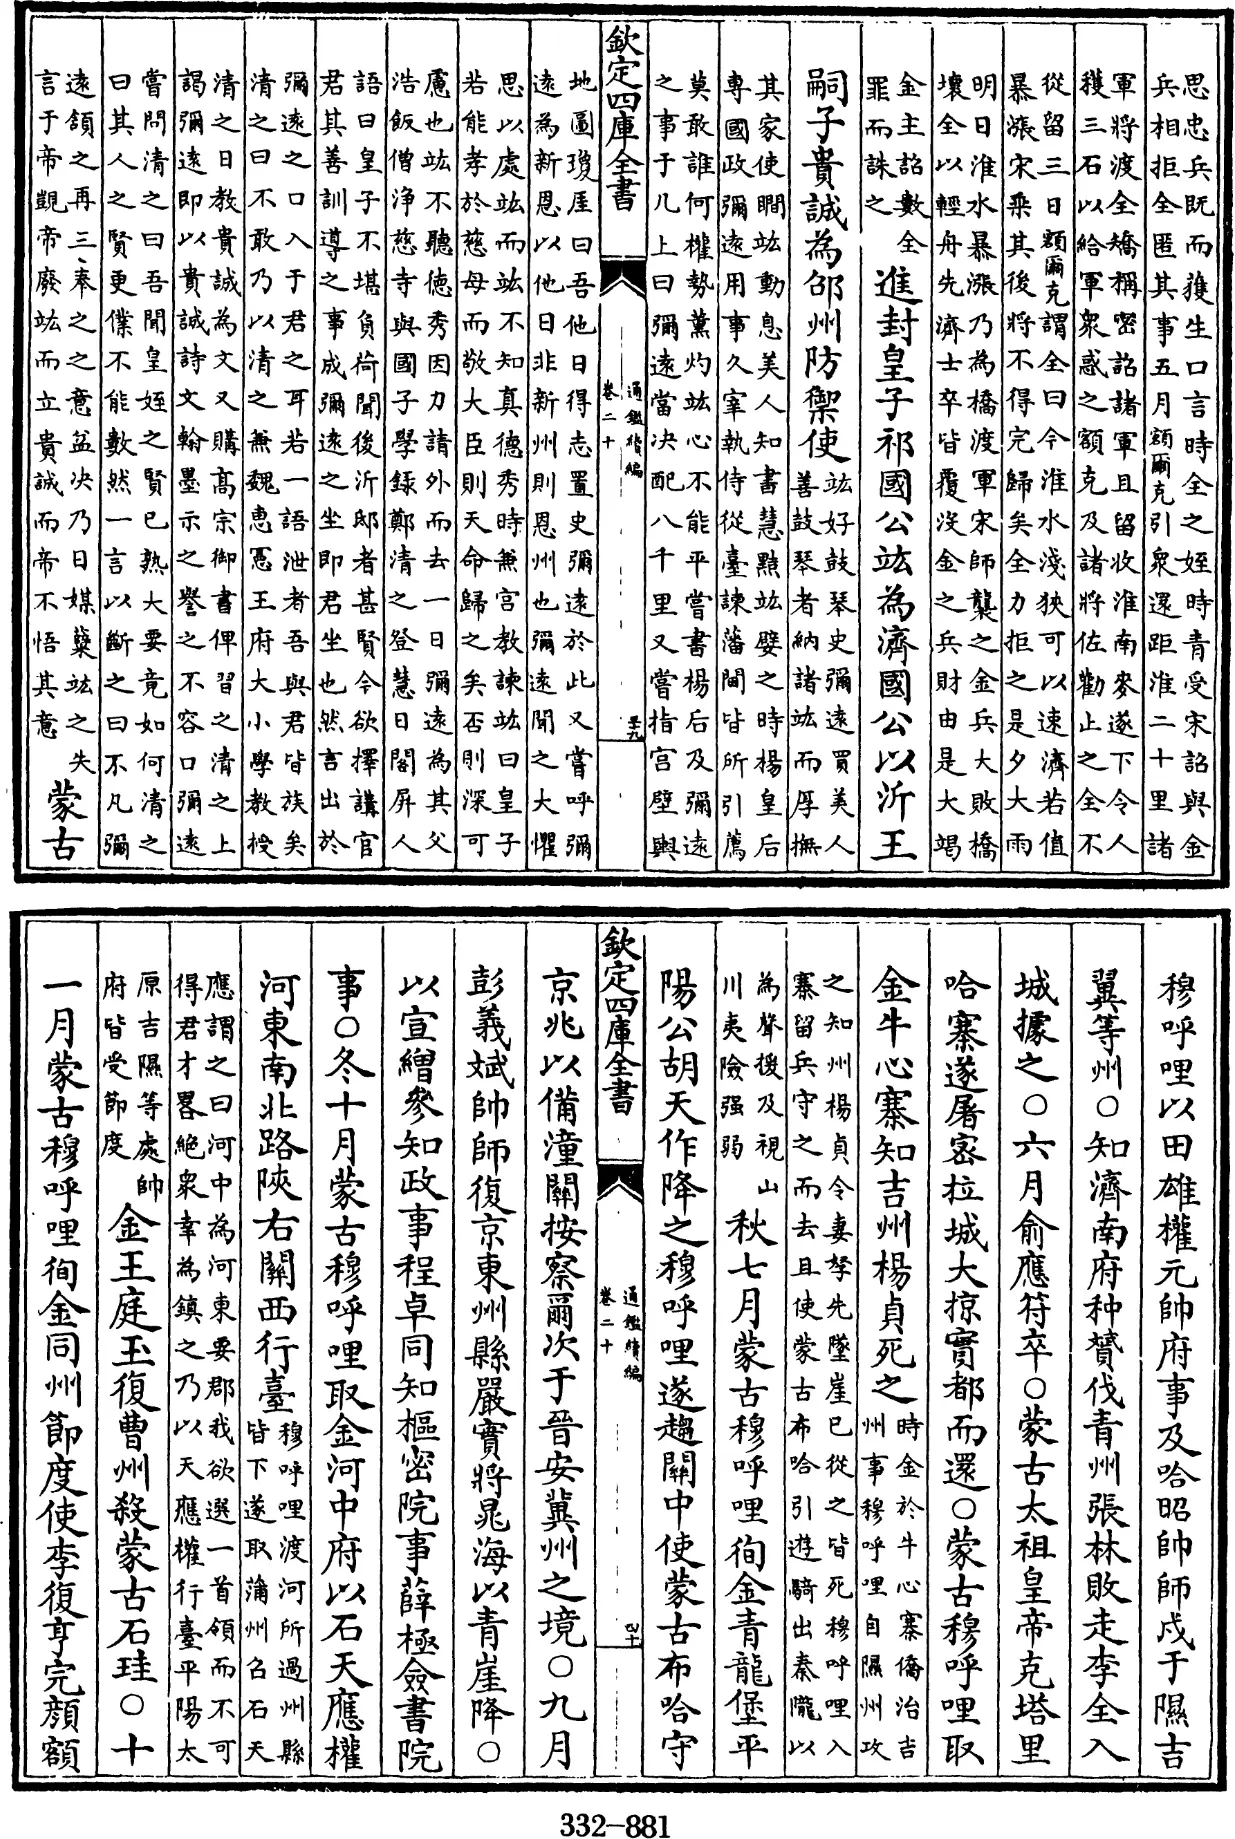 思忠兵既而獲生口言時全之姪時青受宋詔與金
兵相拒全匿其事五月額爾克引衆還距淮二十里諸
軍將渡全矯稱密詔諸軍且留收淮南麥遂下令人
獲三石以給軍衆惑之額克及諸將佐勸止之全不
從留三日額爾克謂全曰今淮水淺狹可以速濟若值
暴漲宋乗其後將不得完歸矣全力拒之是夕大雨
明日淮水暴漲乃為橋渡軍宋師襲之金兵大敗橋
壞全以輕舟先濟士卒皆覆没金之兵財由是大竭
金主詔數全
罪而誅之
進封皇子祁國公竑為濟國公以沂王
嗣子貴誠為邵州防禦使
竑好鼓琴史彌遠買美人
善鼓琴者納諸竑而厚撫
其家使瞷竑動息美人知書慧黠竑嬖之時楊皇后
專國政彌遠用事久宰執侍從臺諫藩閫皆所引薦
莫敢誰何權勢薰灼竑心不能平嘗書楊后及彌遠
之事于几上曰彌遠當决配八千里又嘗指宮壁輿
欽定四庫全書
通鑑續編
卷二十
三十九
地圖瓊厓曰吾他日得志置史彌遠於此又嘗呼彌
遠為新恩以他日非新州則恩州也彌遠聞之大懼
思以處竑而竑不知真德秀時兼宮教諫竑曰皇子
若能孝於慈母而敬大臣則天命歸之矣否則深可
慮也竑不聽德秀因力請外而去一日彌遠為其父
浩飯僧淨慈寺與國子學録鄭清之登慧日閣屏人
語曰皇子不堪負荷聞後沂邸者甚賢今欲擇講官
君其善訓導之事成彌遠之坐即君坐也然言出於
彌遠之口入于君之耳若一語泄者吾與君皆族矣
清之曰不敢乃以清之兼魏惠憲王府大小學教授
清之日教貴誠為文又購高宗御書俾習之清之上
謁彌遠即以貴誠詩文翰墨示之譽之不容口彌遠
嘗問清之曰吾聞皇姪之賢已熟大要竟如何清之
曰其人之賢更僕不能數然一言以斷之曰不凡彌
遠頷之再三奉之之意益决乃日媒糵竑之失
言于帝覬帝廢竑而立貴誠而帝不悟其意
蒙古
穆呼哩以田雄權元帥府事及哈昭帥師戍于隰吉
翼等州〇知濟南府种贇伐青州張林敗走李全入
城據之〇六月俞應符卒〇蒙古太祖皇帝克塔里
哈寨遂屠密拉城大掠實都而還〇蒙古穆呼哩取
金牛心寨知吉州楊貞死之
時金於牛心寨僑治吉
州事穆呼哩自隰州攻
之知州楊貞令妻孥先墜崖已從之皆死穆呼哩入
寨留兵守之而去且使蒙古布哈引遊騎出秦隴以
為聲後及視山
川夷險强弱
秋七月蒙古穆呼哩徇金青龍堡平
陽公胡天作降之穆呼哩遂趨關中使蒙古布哈守
欽定四庫全書
通鑑續編
卷二十
四十
京兆以備潼關按察爾次于晉安冀州之境〇九月
彭義斌帥師復京東州縣嚴實將晁海以青崖降〇
以宣繒參知政事程卓同知樞密院事薛極僉書院
事〇冬十月蒙古穆呼哩取金河中府以石天應權
河東南北路陜右關西行臺
穆呼哩渡河所過州縣
皆下遂取蒲州召石天
應謂之曰河中為河東要郡我欲選一首領而不可
得君才畧絶衆幸為鎮之乃以天應權行臺平陽太
原吉隰等處帥
府皆受節度
金王庭玉復曹州殺蒙古石珪〇十
一月蒙古穆呼哩徇金同州節度使李復亨完顏額
332-881